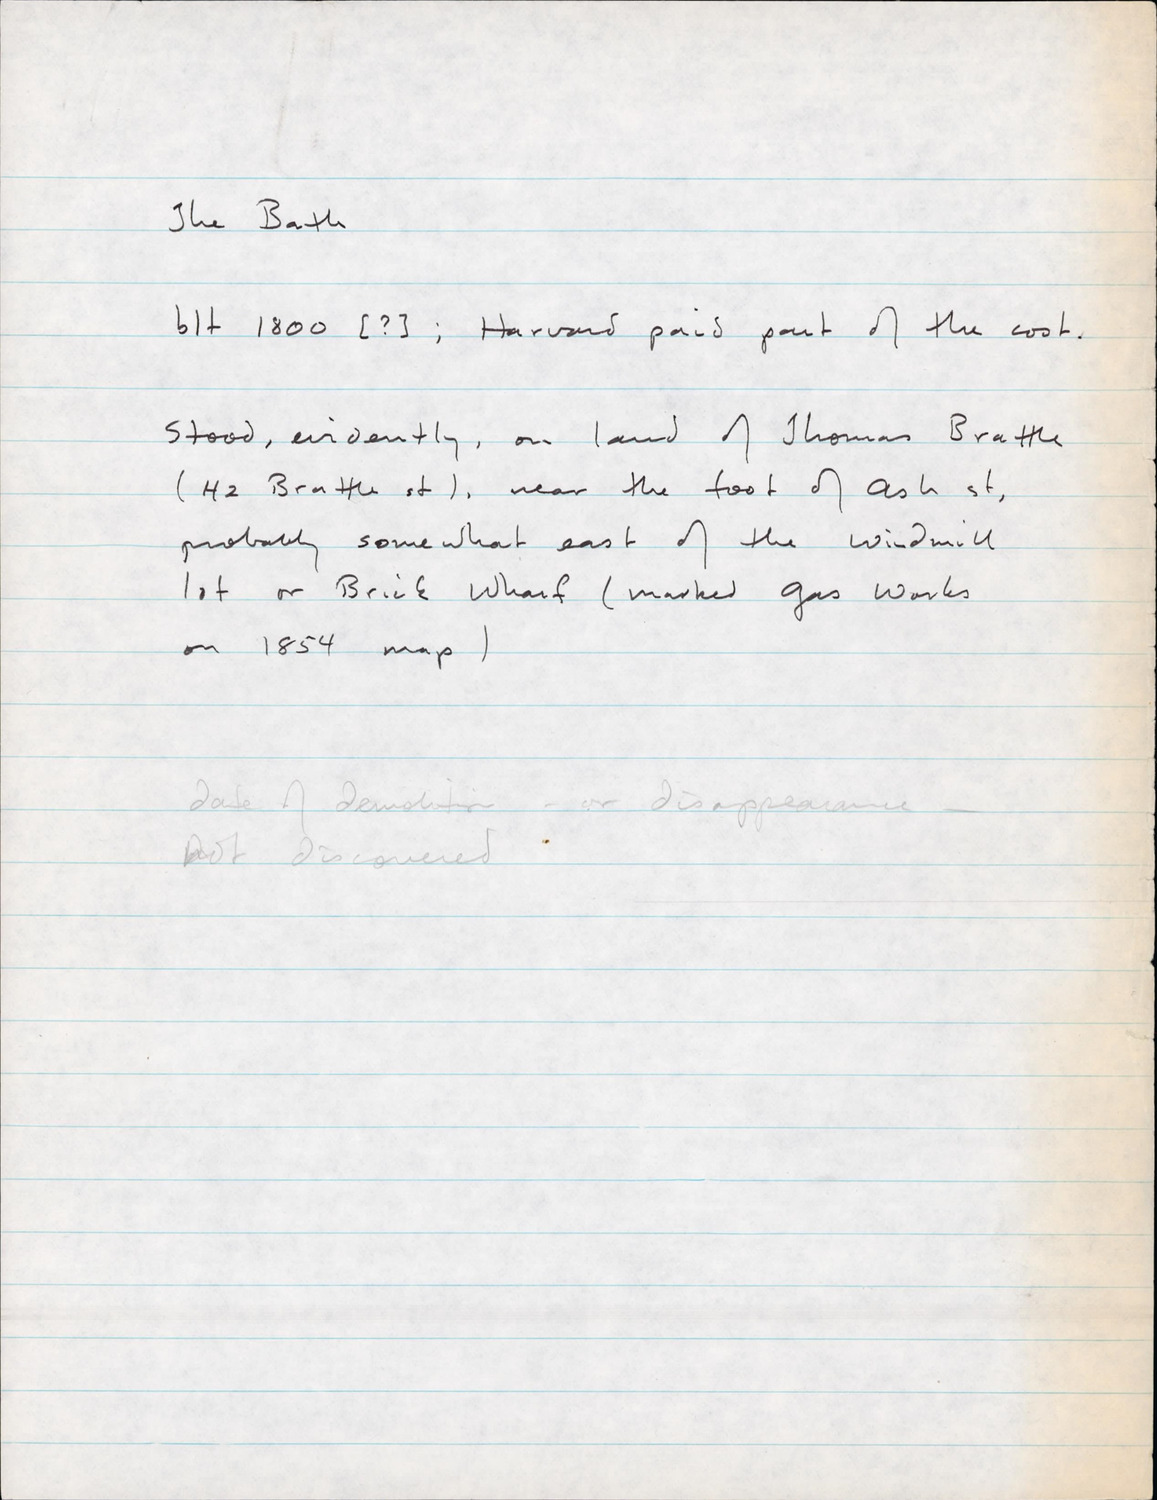 The Bath
blt 1800 [?]; Harvard paid part of the cost.
Stood, evidently, on land of Thomas Brattle
(42 Brattle st), near the foot of Ash st,
probably somewhat east of the windmill
lot or Brick Wharf (marked gas works
on 1854 map)
date of demolition - or disappearance -
not discovered